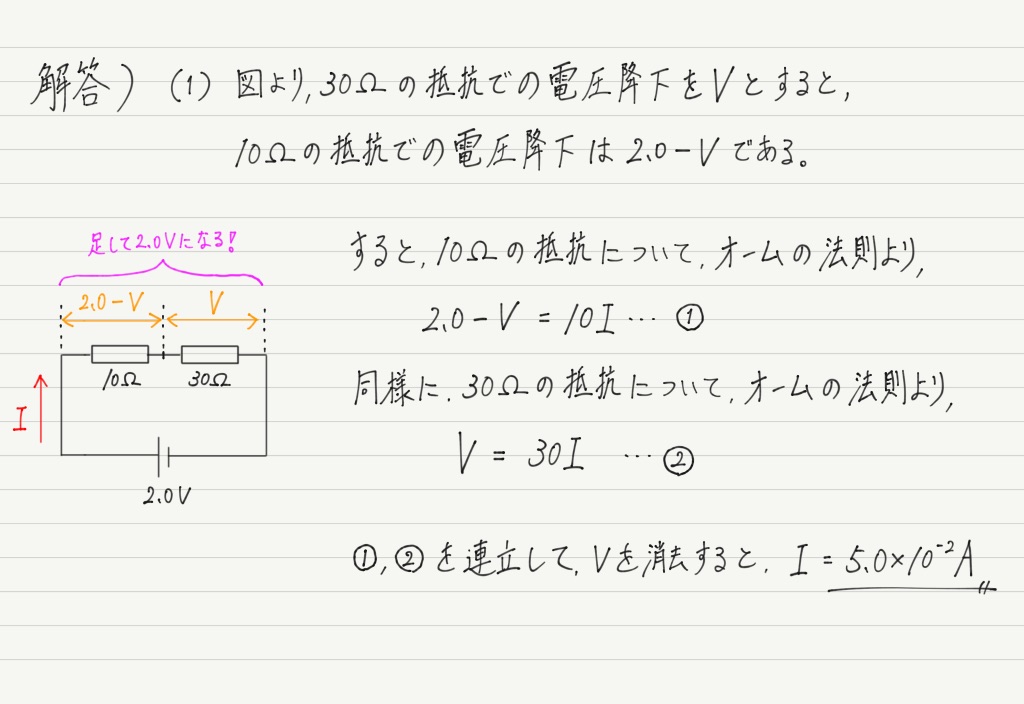 解答) (1) 図より, 30Ωの抵抗での電圧降下をVとすると,
10Ωの抵抗での電圧降下は 2.0-Vである。
足して2.0Vになる!
2.0-V
V
10Ω
30Ω
I
2.0V
すると, 10Ωの抵抗について, オームの法則より,
2.0-V = 10I … ①
同様に, 30Ωの抵抗について, オームの法則より,
V = 30I … ②
①, ②を連立して, Vを消去すると, I = 5.0×10⁻²A